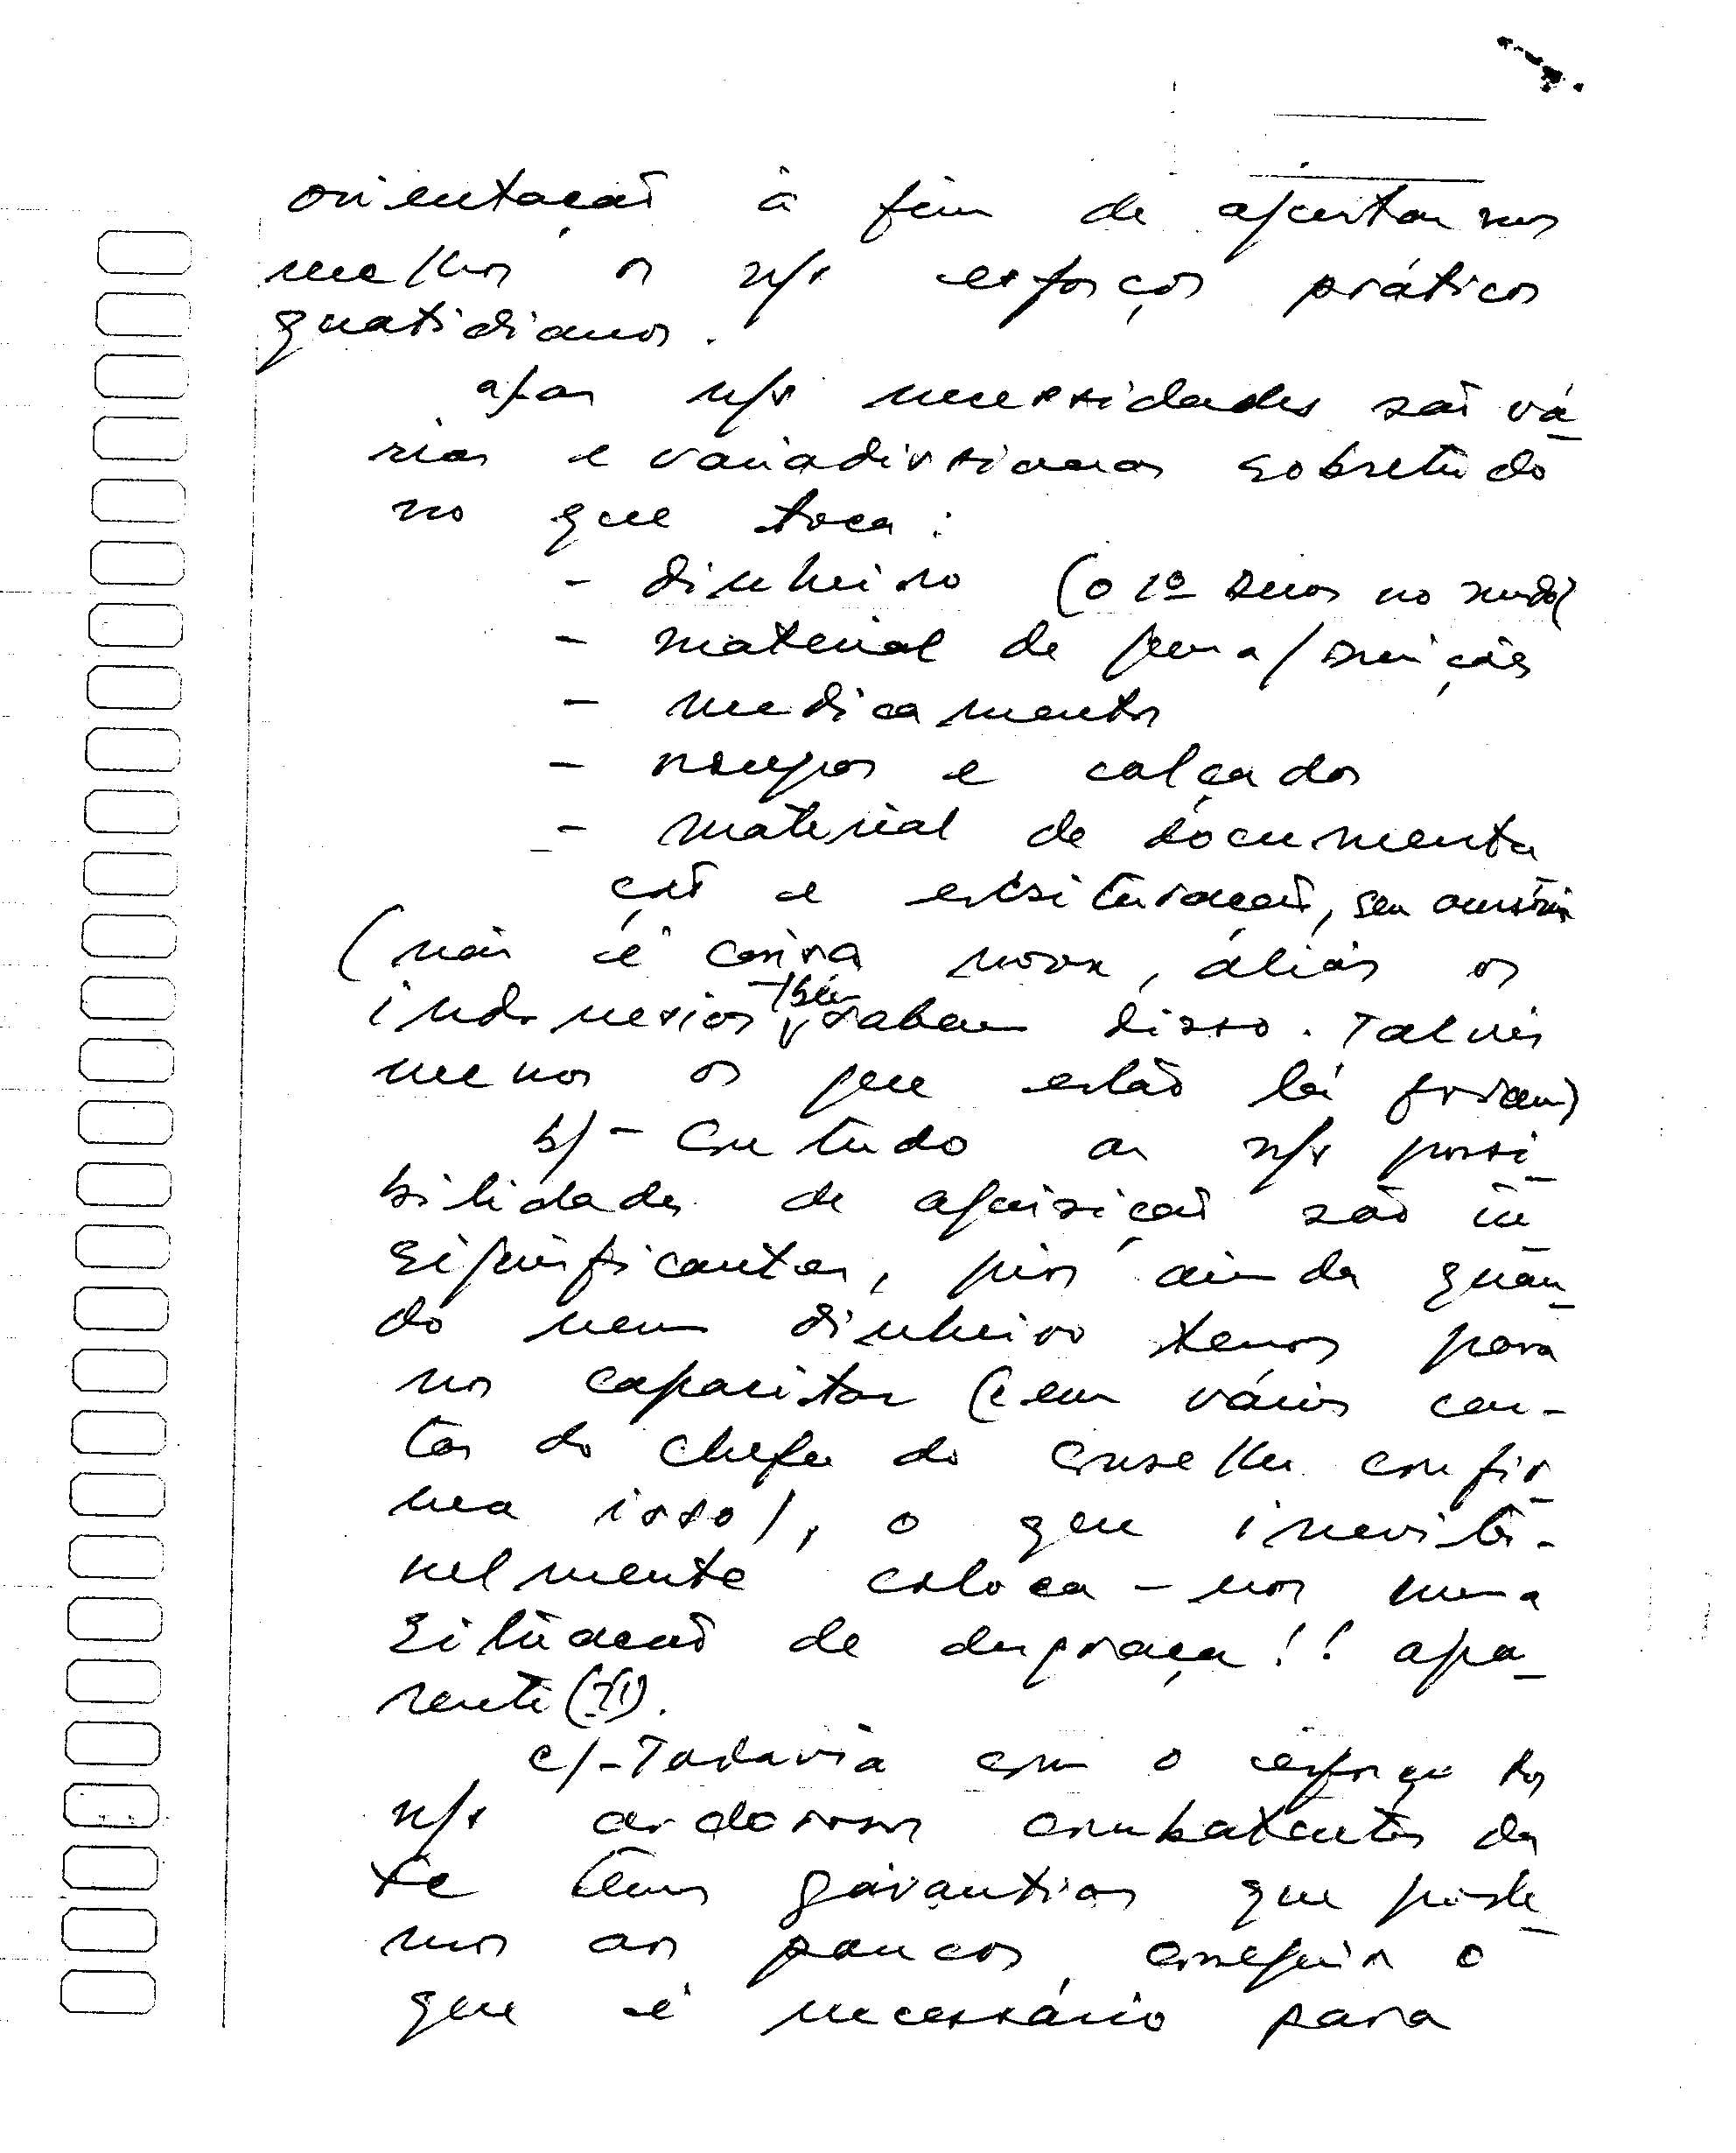 orientação à fim de apertarmos
melhor os n/s esforços práticos
quatidianos.
a/as n/s necessidades são vá-
rias e variadissimas sobretudo
no que toca:
- dinheiro (o 1º Deus no mundo)
- material de guerra/munições
- medicamentos
- roupas e calçados
- material de documenta
ção e
(não é coisa nova, áliás os
indonésios tbém sabem disso. Talvés
menos os que estão lá foram)
b/- Contudo as n/s possi-
bilidades de aquisição são in
significantes, pior ainda quan-
do nem dinheiro temos para
nos capacitar (em várias car-
tas do chefe do conselho confir-
ma isso), o que inevitá-
velmente coloca-nos numa
situação de desgraça!! apa-
rente (?!).
c/-Todavia com o esforço dos
n/s ardorosos combatentes da
te temos garantias que pode-
mos aos poucos conseguir o
que é necessário para